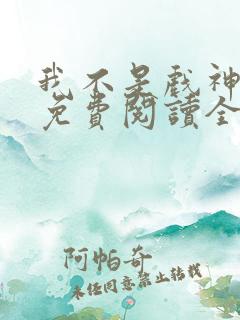 我不是戏神
免費閱讀全
阿帕奇
未经同意禁止转载